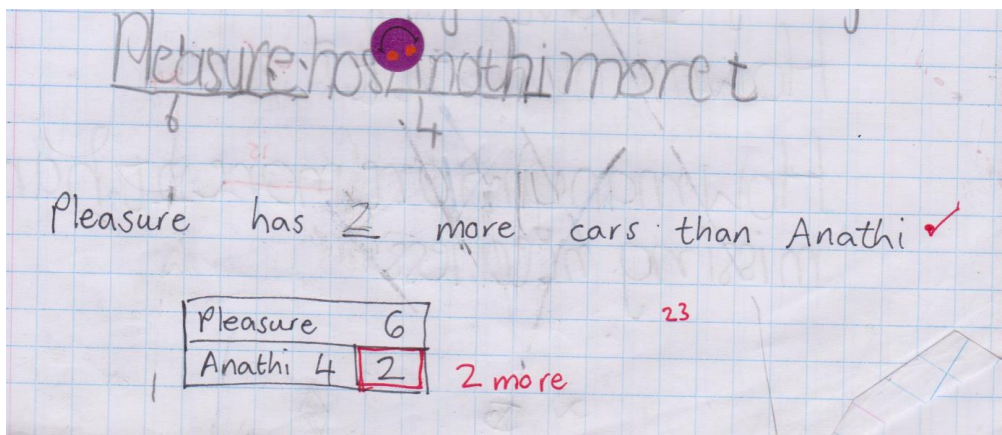 Pleasure has Anathi more t
6 4
Pleasure has 2 more cars than Anathi
23
Pleasure 6
Anathi 4 2 2 more